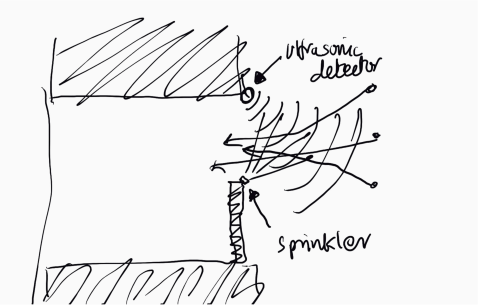 ultrasonic
detector
sprinkler